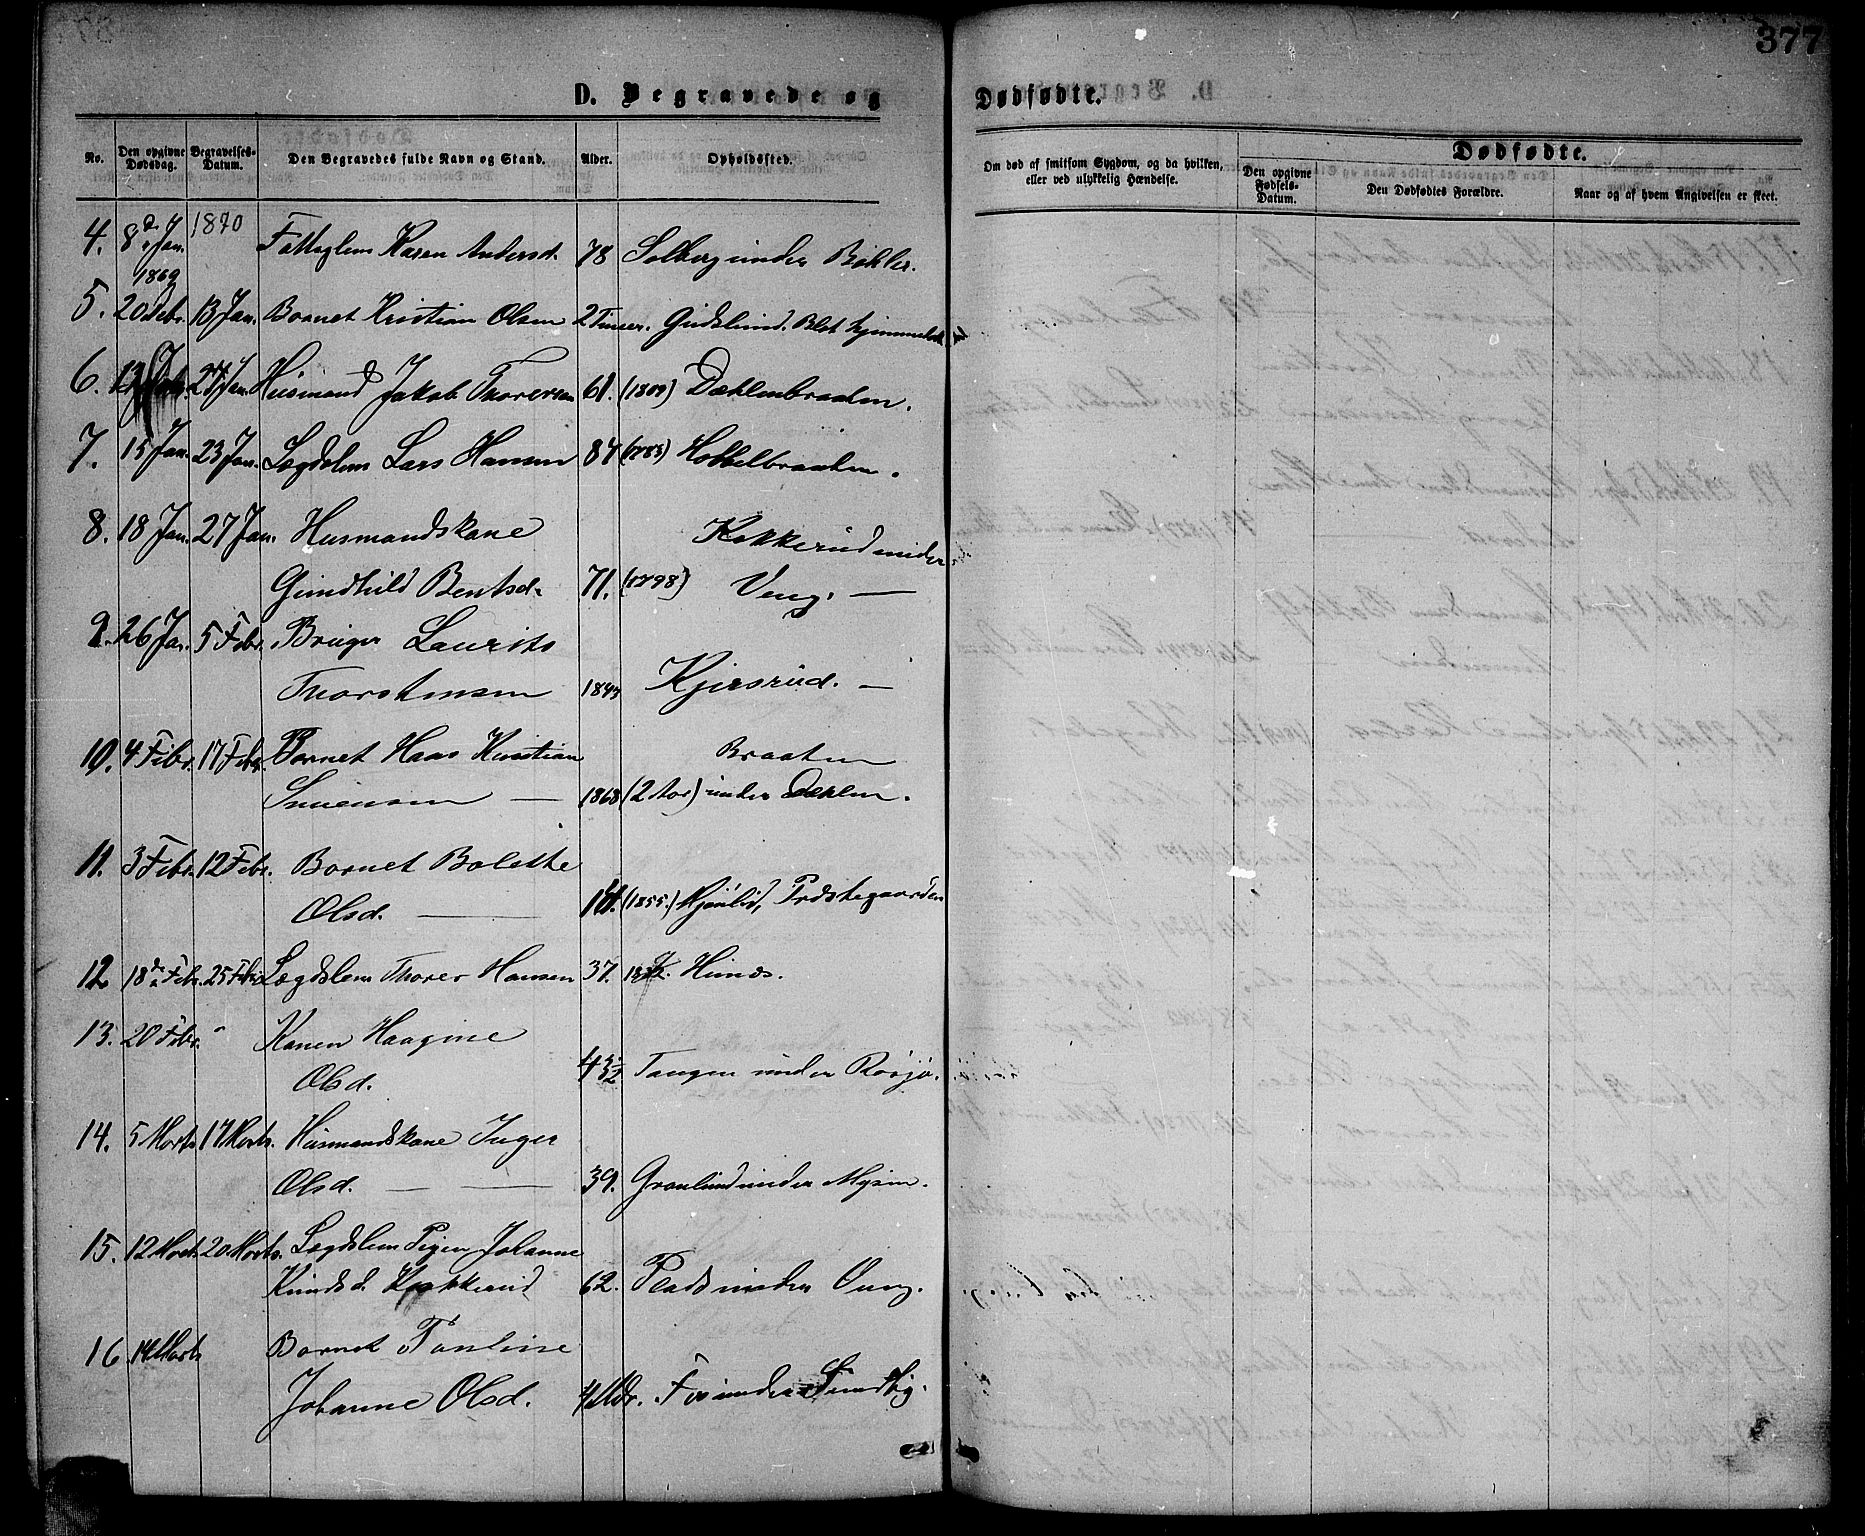 377
D. Begravede og Dødfødte.
No. Den opgivne Dødsdag. Begravelses-Datum. Den Begravedes fulde Navn og Stand. Alder. Opholdssted.
Om død af smitsom Sygdom, og da hvilken, eller ved ulykkelig Hændelse.
Dødfødte.
Den opgivne Fødsels-Datum. Den Dødfødtes Forældre. Naar og af hvem Angivelsen er skeet.
1870
4. 8 Jan. Fattiglem Karen Andersd. 78 Solberg under Bøhler.
1869
5. 20 Debr. 13 Jan. Barnet Kristian Olsen 2 Timer. Gudslund. Blet hjemmedøbt
6. 27 Jan. Husmand Jakob Thoresen 61. (1809) Dæhlenbraaten.
7. 15 Jan. 23 Jan. Lægdslem Lars Hansen 84 (1785) Hobbelbraaten.
8. 18 Jan. 27 Jan. Husmandskone Kokkerud under
Gundhild Bentsd. 71. (1798) Veng. —
9. 26 Jan. 5 Febr. Bruger Laurits
Thorstensen 1843 Kjersrud. —
10. 4 Febr. 17 Febr. Barnet Hans Kristian Braaten
Svensen — 1868 (2 Aar) under Dæhlen.
11. 3 Febr. 12 Febr. Barnet Bolette
Olsd. — 14. (1855.) Mjønlid, Præstegaarden
12 18 Febr. 25 Febr. Lægdslem Thorer Hansen 37. 1832. Humøs.
13. 20 Febr. " Karen Haagine
Olsd. Tangen under Rosjø.
14. 5 Marts 17 Marts. Husmandskone Inger
Olsd. — — 39. Grønlund under Mysen.
15. 12 Marts. 20 Marts. Lægdslem Pigen Johanne
Knudsd. Kokkerud 62. Plads under Veng.
16 14 Marts Barnet Pauline
Johanne Olsd. 4 Mdr. under Sundby.